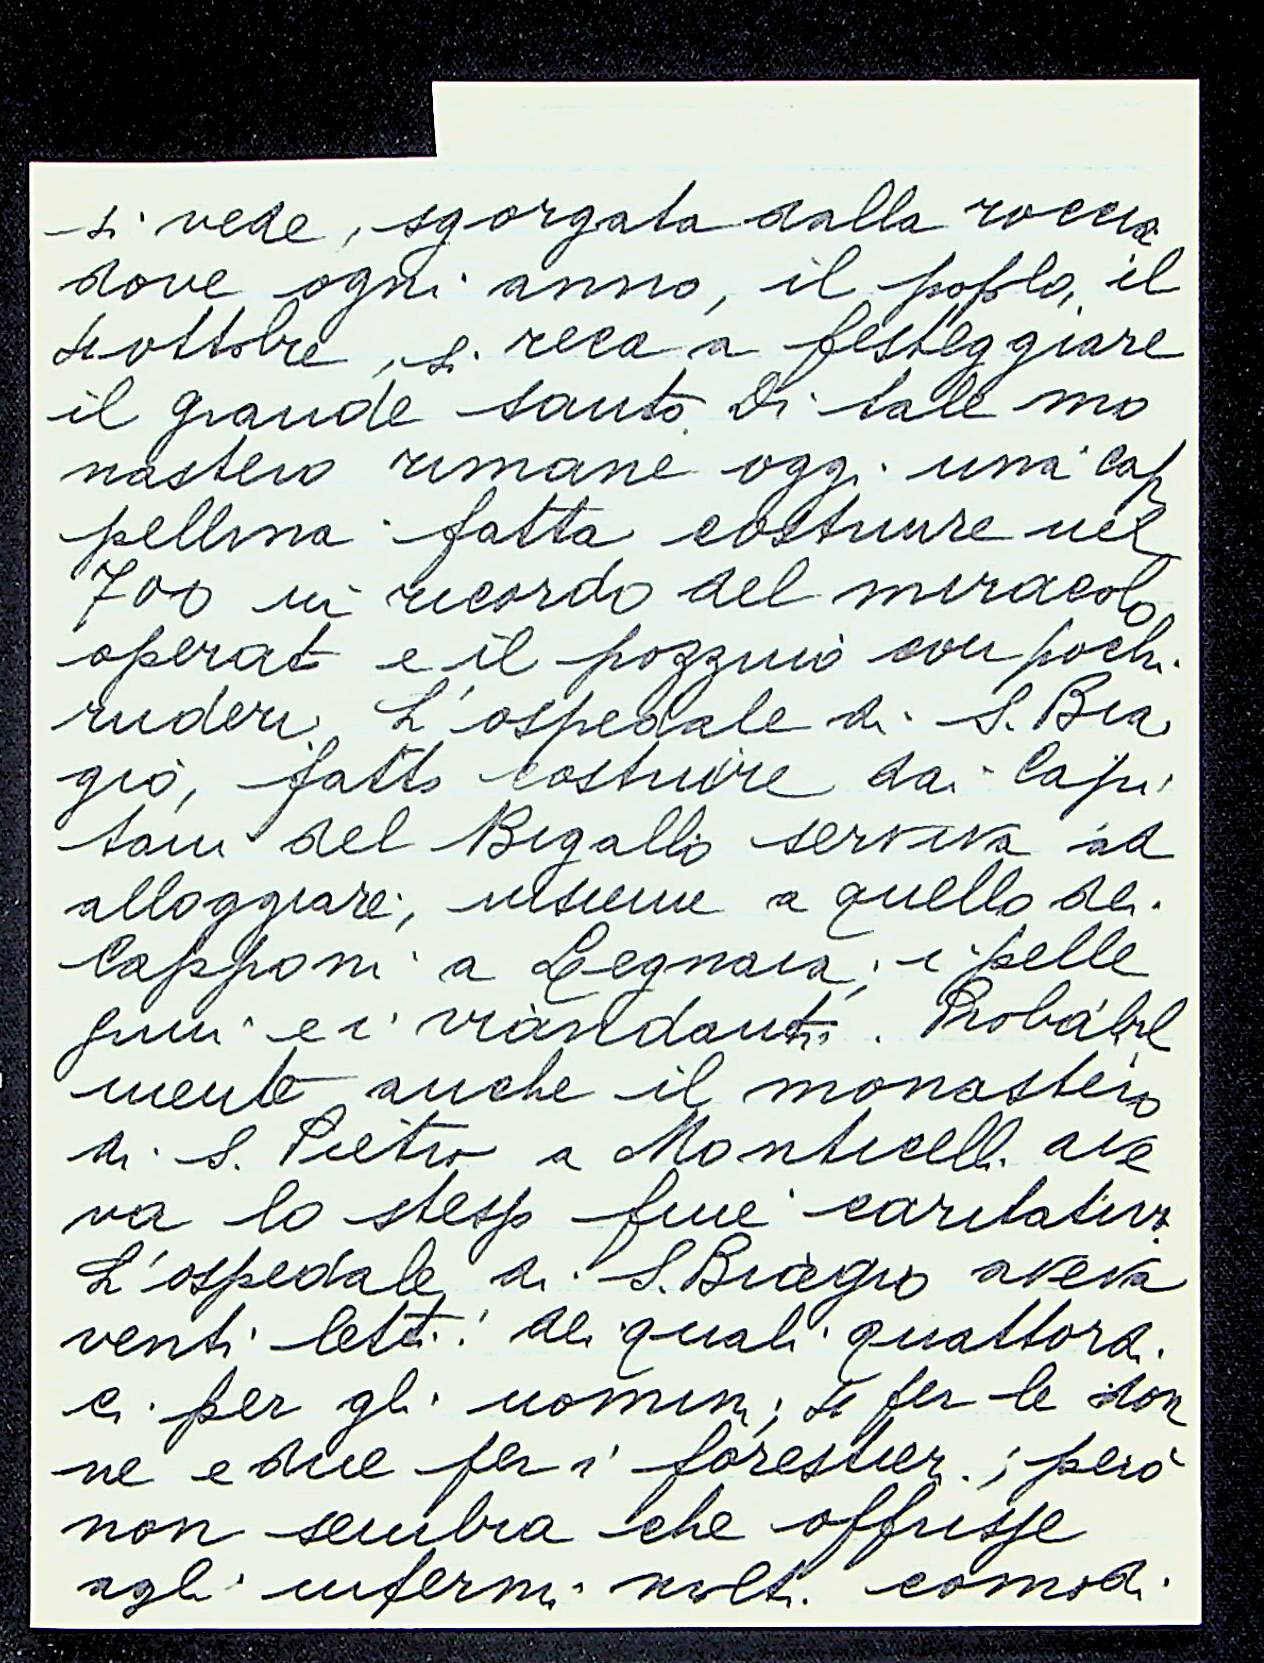 si vede, sgorgata dalla roccia
dove ogni anno, il popolo, il
4 ottobre, si reca a festeggiare
il grande santo. Di tale mo
nastero rimane oggi una cap
pellina fatta costruire nel
700 in ricordo del miracolo
operat e il pozzino con pochi
ruderi. L'ospedale di S. Bia
gio, fatto costruire dai Capi
tani del Bigallo serviva ad
alloggiare, insieme a quello dei
Capponi a Legnaia, i pelle
grini e i viandanti. Probabil
mente anche il monastero
di S. Pietro a Monticelli ave
va lo stesso fine caritativo.
L'ospedale di S. Biagio aveva
venti letti: dei quali quattordi
ci per gli uomini; per le don
ne e due per i forestieri; però
non sembra che offrisse
agli infermi molti comodi.